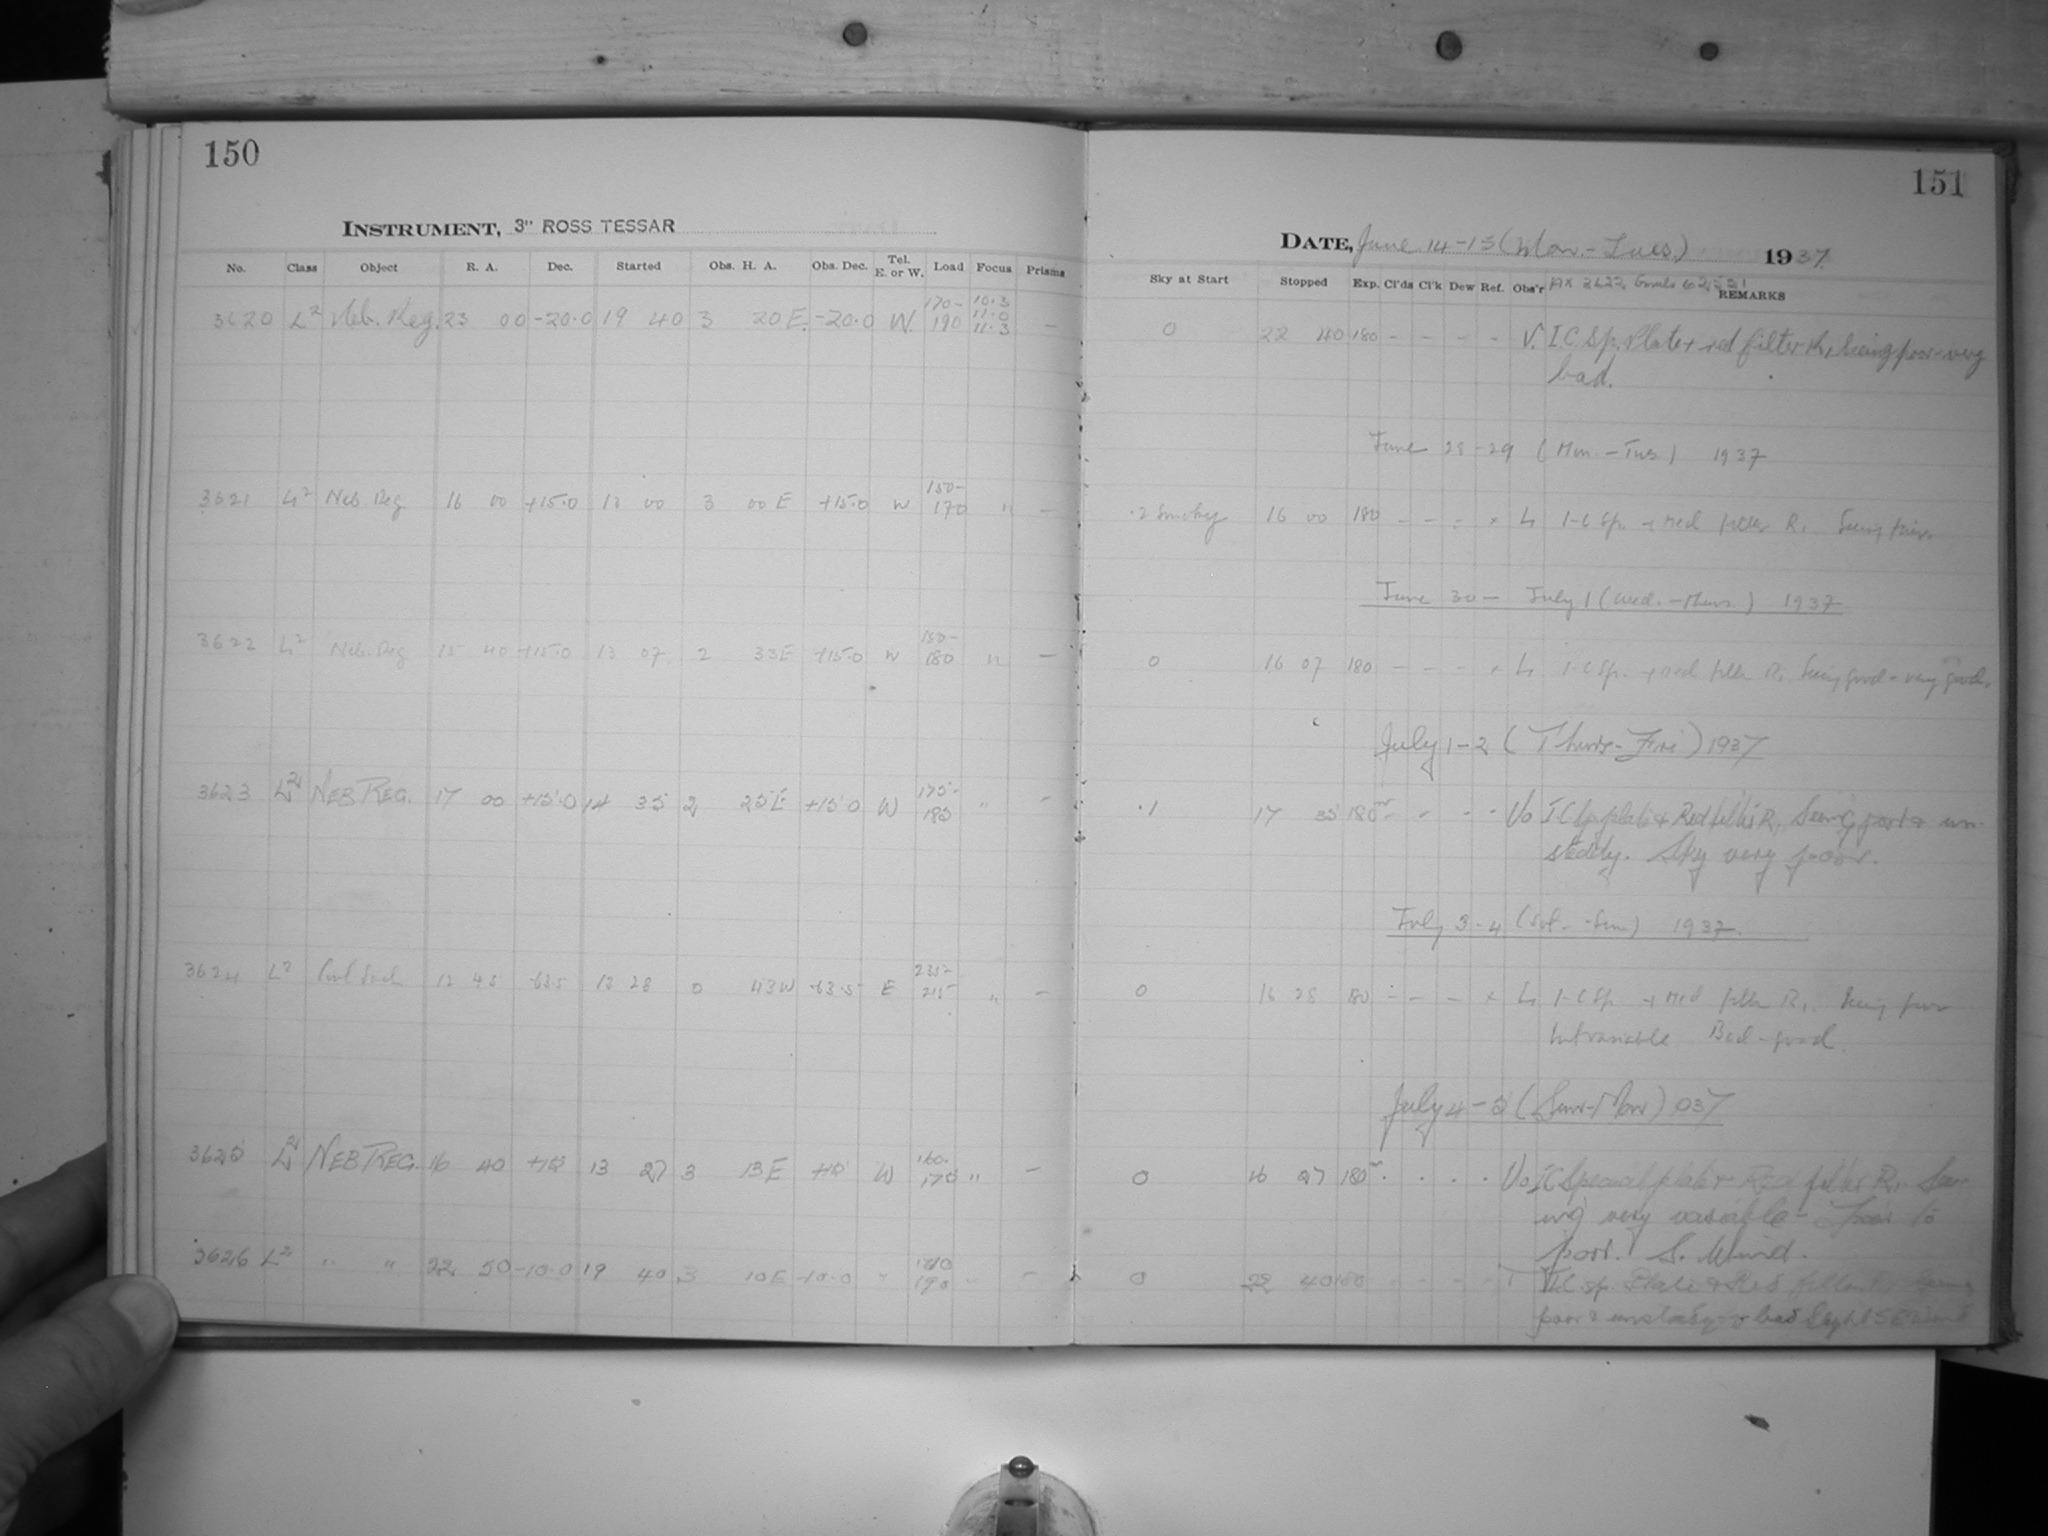 150
INSTRUMENT, 3" ROSS TESSAR
No. Class Object R. A. Dec. Started Obs. H. A. Obs. Dec. Tel. E. or W. Load Focus Prisms
3620 L2 Neb. Reg. 23 00 -20.0 19 40 3 20 E. -20.0 W. 170- 190 10.3 11.0 11.3 —
3621 L2 Neb. Reg 16 00 +15.0 13 00 3 00 E +15.0 W 150- 170 " —
3622 L2 Neb. Reg 15 40 +15.0 13 07 2 33 E +15.0 W 180 " —
3623 L2 NEB REG. 17 00 +15.0 14 35 2 25 E +15.0 W 175- 185 " —
3624 L2 12 45 -63.5 13 28 0 43 W -63.5 E 235- 215 " —
3625 L2 NEB REG. 16 40 +15 13 27 3 13 E +15 W 160- 175 " —
3626 L2 " " 22 50 -10.0 19 40 3 10 E -10.0 " 190 " —
151
DATE, June 14-15 (Mon.-Tues.) 1937.
Sky at Start Stopped Exp. Cl'ds Cl'k Dew Ref. Obs'r REMARKS
0 22 40 180 - - - - V. I.C. Sp. Plate + red filter R, Seeing poor-very
bad.
June 28-29 (Mon.-Tues.) 1937
.2 Smokey 16 00 180 - - - x L I-C Sp. + Red filter R. Seeing fair.
June 30 - July 1 (Wed.-Thurs.) 1937
0 16 07 180 - - - x L I-C Sp. + red filter R. Seeing good - very good.
July 1-2 (Thurs-Fri) 1937
.1 17 35 180m - - - - Vo I.C. Sp plate + Red filter R, Seeing poor & un-
steady. Sky very poor.
July 3-4 (Sat.-Sun) 1937.
0 16 28 180 - - - x L I-C Sp + Red filter R. Seeing
but variable Bad-good.
July 4-5 (Sun-Mon) 037
0 16 27 180m . . . . Vo IC Special plate + Red filter R, See-
ing very variable - Poor to
poor. S. Wind.
0 22 40 180 - - - - T I.C. sp. Plate & Red filter Seeing
poor & unsteady to bad Slight SE Wind